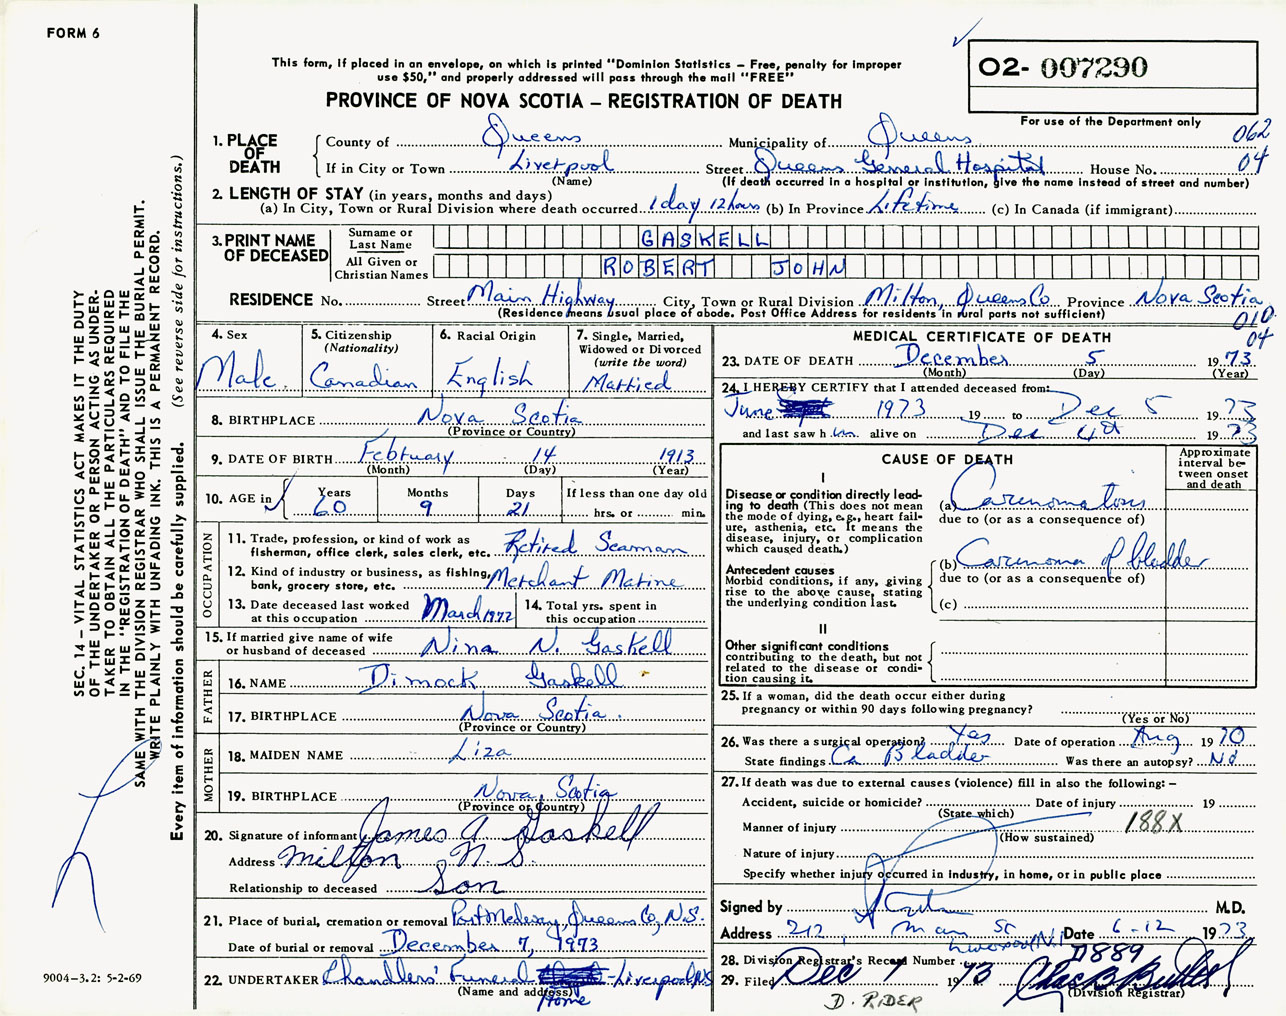 FORM 6
This form, if placed in an envelope, on which is printed "Dominion Statistics – Free, penalty for improper
use $50," and properly addressed will pass through the mail "FREE"
PROVINCE OF NOVA SCOTIA – REGISTRATION OF DEATH
O2- 007290
For use of the Department only
062
04
1. PLACE OF DEATH
County of Queens Municipality of Queens
If in City or Town Liverpool Street Queens General Hospital House No.
(Name) (If death occurred in a hospital or institution, give the name instead of street and number)
2. LENGTH OF STAY (in years, months and days)
(a) In City, Town or Rural Division where death occurred 1 day 12 hours (b) In Province Lifetime (c) In Canada (if immigrant)
3. PRINT NAME OF DECEASED
Surname or Last Name GASKELL
All Given or Christian Names ROBERT JOHN
RESIDENCE No. Street Main Highway City, Town or Rural Division Milton, Queens Co Province Nova Scotia
(Residence means usual place of abode. Post Office Address for residents in rural parts not sufficient)
010
04
4. Sex Male.
5. Citizenship (Nationality) Canadian
6. Racial Origin English
7. Single, Married, Widowed or Divorced (write the word) Married
8. BIRTHPLACE Nova Scotia
(Province or Country)
9. DATE OF BIRTH February 14 1913
(Month) (Day) (Year)
10. AGE in Years 60 Months 9 Days 21 If less than one day old hrs. or min.
OCCUPATION
11. Trade, profession, or kind of work as fisherman, office clerk, sales clerk, etc. Retired Seaman
12. Kind of industry or business, as fishing, bank, grocery store, etc. Merchant Marine
13. Date deceased last worked at this occupation March 1972
14. Total yrs. spent in this occupation
15. If married give name of wife or husband of deceased Nina N. Gaskell
FATHER
16. NAME Dimock Gaskell
17. BIRTHPLACE Nova Scotia.
(Province or Country)
MOTHER
18. MAIDEN NAME Liza
19. BIRTHPLACE Nova Scotia
(Province or Country)
20. Signature of informant James A Gaskell
Address Milton N. S.
Relationship to deceased Son
21. Place of burial, cremation or removal Port Medway, Queens Co, N.S.
Date of burial or removal December 7, 1973
22. UNDERTAKER Chandlers' Funeral Home - Liverpool N.S
(Name and address)
MEDICAL CERTIFICATE OF DEATH
23. DATE OF DEATH December 5 1973
(Month) (Day) (Year)
24. I HEREBY CERTIFY that I attended deceased from:
June 1973 19 to Dec 5 1973
and last saw h im alive on Dec 4th 1973
CAUSE OF DEATH
Approximate interval between onset and death
I
Disease or condition directly leading to death (This does not mean the mode of dying, e.g., heart failure, asthenia, etc. It means the disease, injury, or complication which caused death.)
(a) Carcinomatosis
due to (or as a consequence of)
Antecedent causes
Morbid conditions, if any, giving rise to the above cause, stating the underlying condition last.
(b) Carcinoma of bladder
due to (or as a consequence of)
(c)
II
Other significant conditions
contributing to the death, but not related to the disease or condition causing it.
25. If a woman, did the death occur either during pregnancy or within 90 days following pregnancy?
(Yes or No)
26. Was there a surgical operation? Yes Date of operation Aug 1970
State findings Ca Bladder Was there an autopsy? No
27. If death was due to external causes (violence) fill in also the following: –
Accident, suicide or homicide? Date of injury 19
(State which)
Manner of injury 188X
(How sustained)
Nature of injury
Specify whether injury occurred in industry, in home, or in public place
Signed by M.D.
Address 212, Main St Liverpool N.S Date 6-12 1973
28. Division Registrar's Record Number 889
29. Filed Dec 7 1973
(Division Registrar)
D. RIDER
SEC. 14 – VITAL STATISTICS ACT MAKES IT THE DUTY
OF THE UNDERTAKER OR PERSON ACTING AS UNDER-
TAKER TO OBTAIN ALL THE PARTICULARS REQUIRED
IN THE "REGISTRATION OF DEATH" AND TO FILE THE
SAME WITH THE DIVISION REGISTRAR WHO SHALL ISSUE THE BURIAL PERMIT.
WRITE PLAINLY WITH UNFADING INK. THIS IS A PERMANENT RECORD.
Every item of information should be carefully supplied. (See reverse side for instructions.)
9004–3.2: 5-2-69